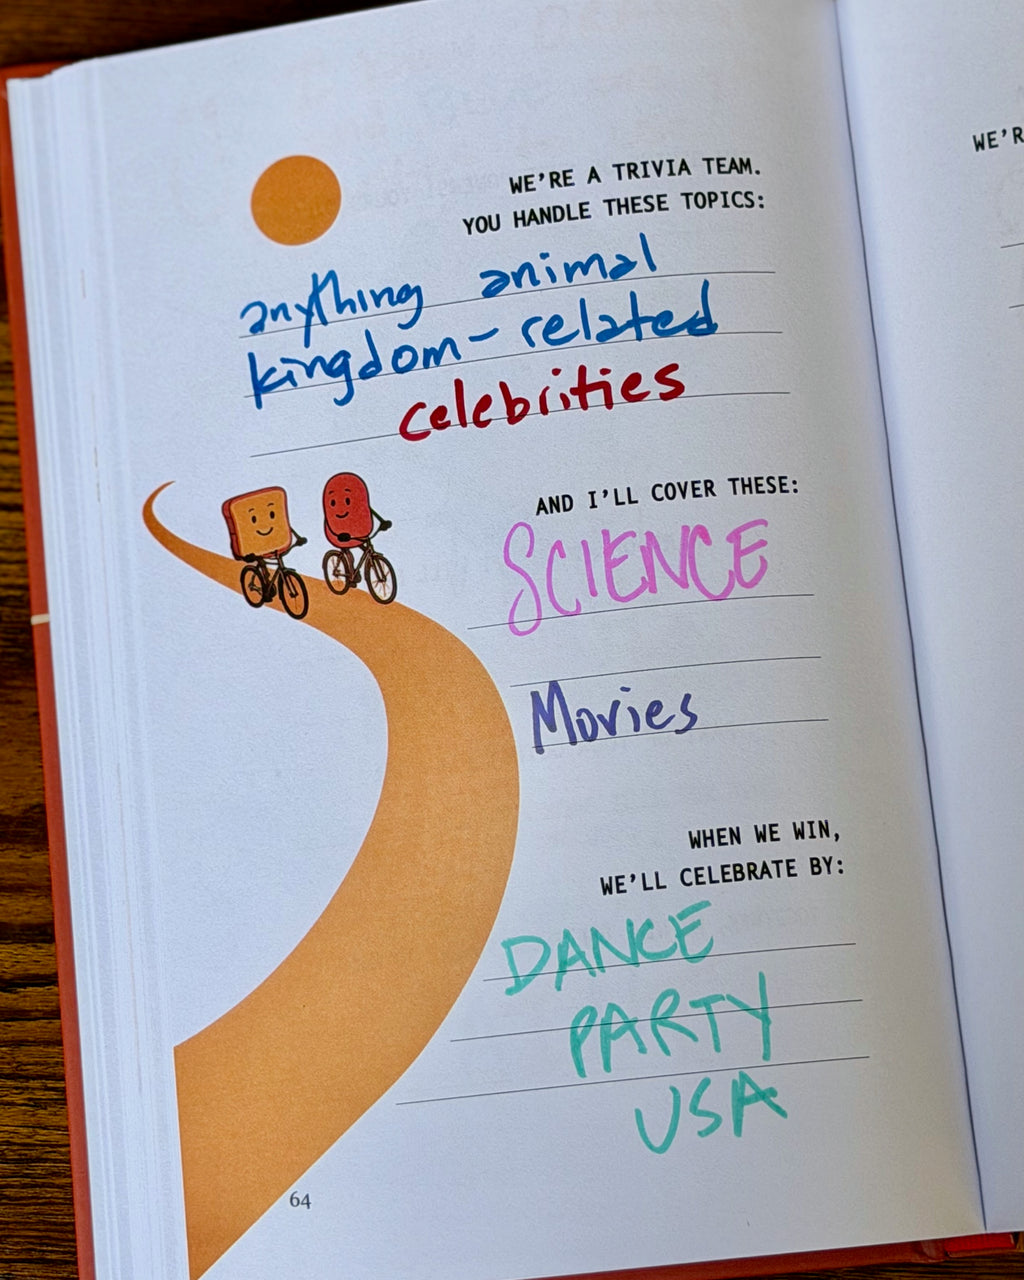 WE'RE A TRIVIA TEAM.
YOU HANDLE THESE TOPICS:
anything animal
kingdom-related
celebrities
AND I'LL COVER THESE:
SCIENCE
Movies
WHEN WE WIN,
WE'LL CELEBRATE BY:
DANCE
PARTY
USA
64